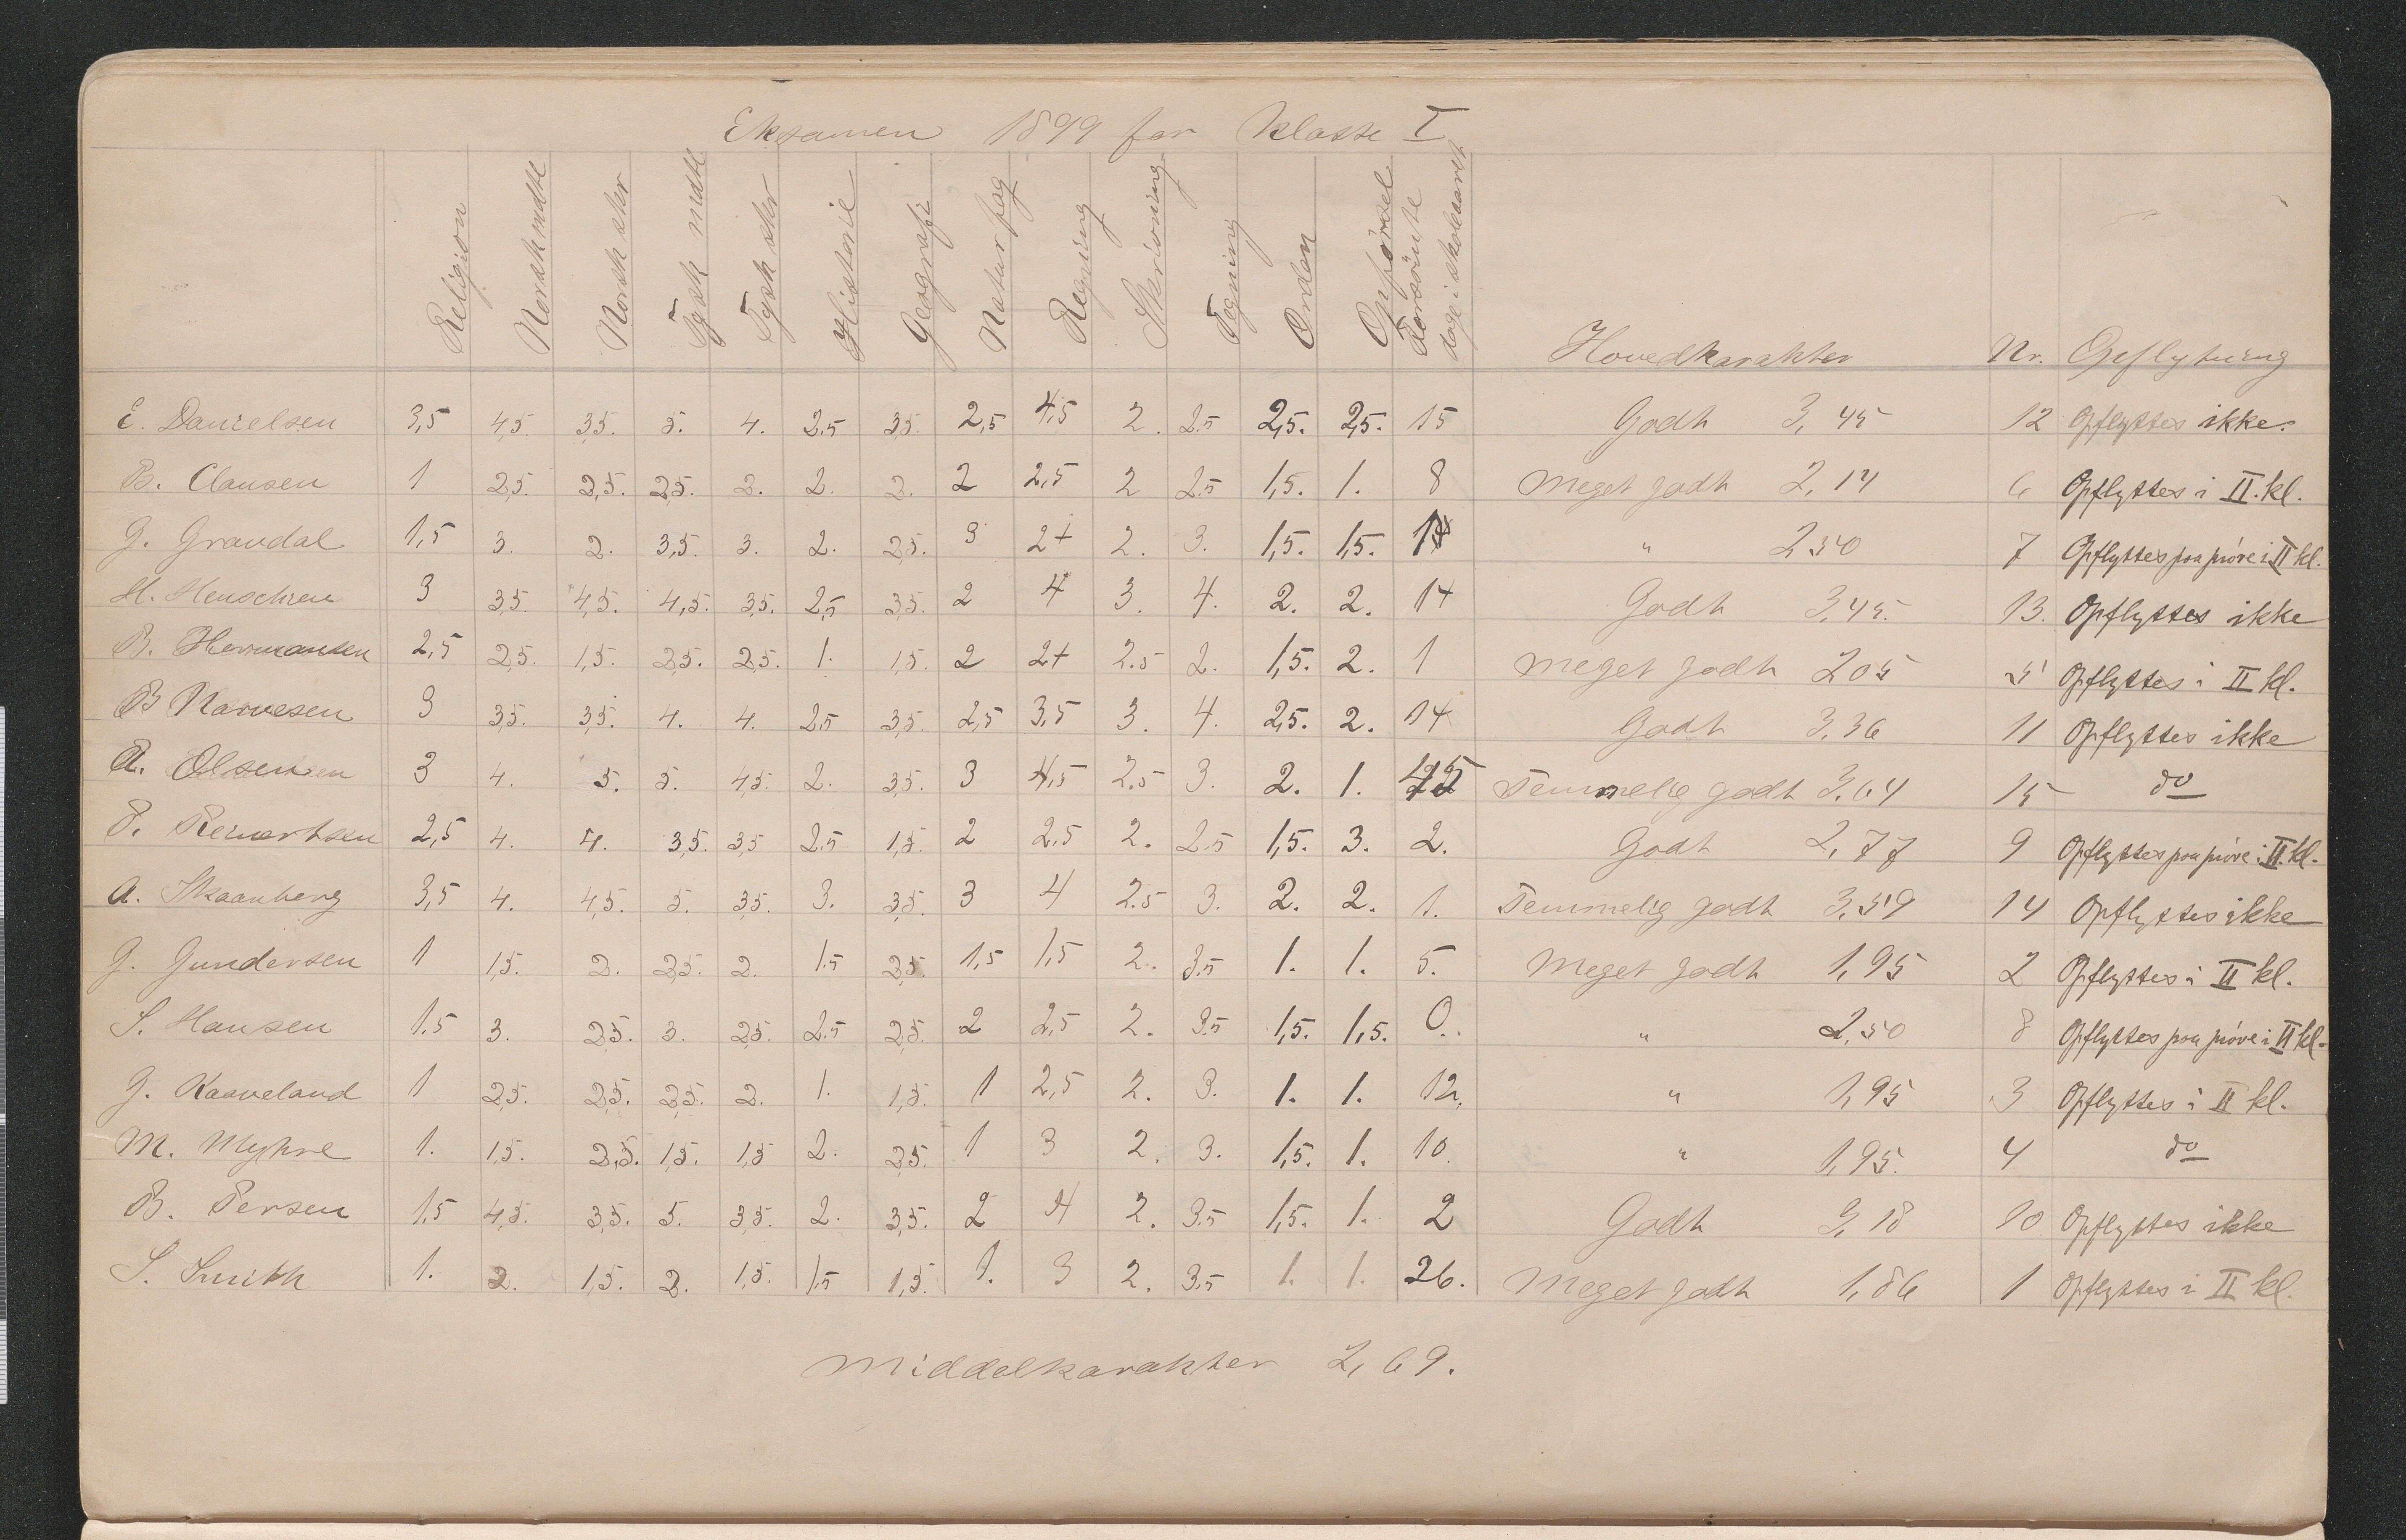 Eksamen 1899 for Klasse I
Religion Norsk mdtl Norsk skr Tysk mdtl Tysk skr Historie Geografi Naturfag Regning Skrivning Tegning Orden Opførsel Forsömte dage i skoleaaret Hovedkarakter Nr. Opflytning
E. Danielsen 3,5 4,5. 3,5. 5. 4. 2.5 3,5. 2,5 4,5 2. 2.5 2,5. 2,5. 15 Godt 3,45 12 Opflyttes ikke.
B. Clausen 1 2,5. 2,5. 2,5. 2. 2. 2. 2 2,5 2 2.5 1,5. 1. 8 Meget godt 2,14 6 Opflyttes i II. kl.
G. Grandal 1,5 3. 2. 3,5. 3. 2. 2,5. 3 2+ 2. 3. 1,5. 1,5. " 2 50 7 Opflyttes paa pröve i II kl.
H. 3 3,5. 4,5. 4,5. 3,5. 2,5 3,5. 2 4 3. 4. 2. 2. 14 Godt 3,45. 13. Opflyttes ikke
B. Hermansen 2,5 2,5. 1,5. 2,5. 2,5. 1. 1,5. 2 2+ 2.5 2. 1,5. 2. 1 Meget godt 2 05 5 Opflyttes i II kl.
B Narvesen 3 3,5. 3,5. 4. 4. 2.5 3,5. 2,5 3,5 3. 4. 2,5. 2. 14 Godt 3,36 11 Opflyttes ikke
A. Olsen 3 4. 5. 5. 4,5. 2. 3,5. 3 4,5 2.5 3. 2. 1. Temmelig godt 3,64 15 do
P. Reinertsen 2,5 4. 4. 3,5. 3,5 2.5 1,5. 2 2,5 2. 2.5 1,5. 3. 2. Godt 2,77 9 Opflyttes paa pröve i II. kl.
A. Skaanberg 3,5 4. 4,5. 5. 3,5. 3. 3,5. 3 4 2.5 3. 2. 2. 1. Temmelig godt 3,59 14 Opflyttes ikke
G. Gundersen 1 1,5. 2. 2,5. 2. 1.5 2,5 1,5 1,5 2. 3.5 1. 1. 5. Meget godt 1,95 2 Opflyttes i II kl.
S. Hansen 1.5 3. 2,5. 3. 2,5. 2.5 2,5. 2 2,5 2. 3.5 1,5. 1,5. 0. " 2,50 8 Opflyttes paa pröve i II kl.
G. Kaaveland 1 2,5. 2,5. 2,5. 2. 1. 1,5. 1 2,5 2. 3. 1. 1. 12. " 1,95 3 Opflyttes i II kl.
M. Myhre 1. 1,5. 2,5. 1,5. 1,5 2. 2,5. 1 3 2. 3. 1,5. 1. 10. " 1,95. 4 do
B. Persen 1,5 4,5. 3,5. 5. 3,5. 2. 3,5. 2 4 2. 3.5 1,5. 1. 2 Godt 3,18 10 Opflyttes ikke
S. Smith 1. 2. 1,5. 2. 1,5. 1.5 1,5. 1. 3 2. 3.5 1. 1. 26. Meget godt 1,86 1 Opflyttes i II kl.
Middelkarakter 2,69.